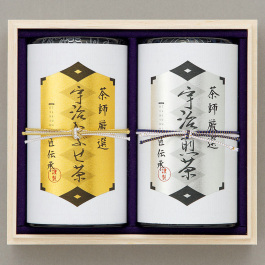 茶師厳選
宇治かぶせ茶
匠伝承
茶師厳選
宇治煎茶
匠伝承